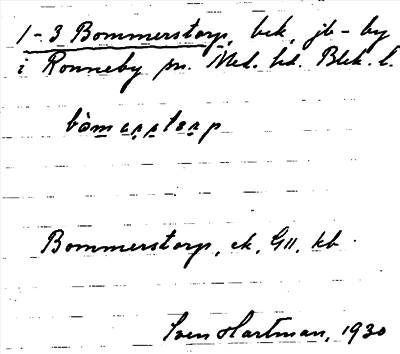 1-3 Bommerstorp, bek, jb-by
i Ronneby sn. Med. hd. Blek. l.
bòmaṣṣtarp
Bommerstorp, ek, G11, kb.
Sven Hartman, 1930